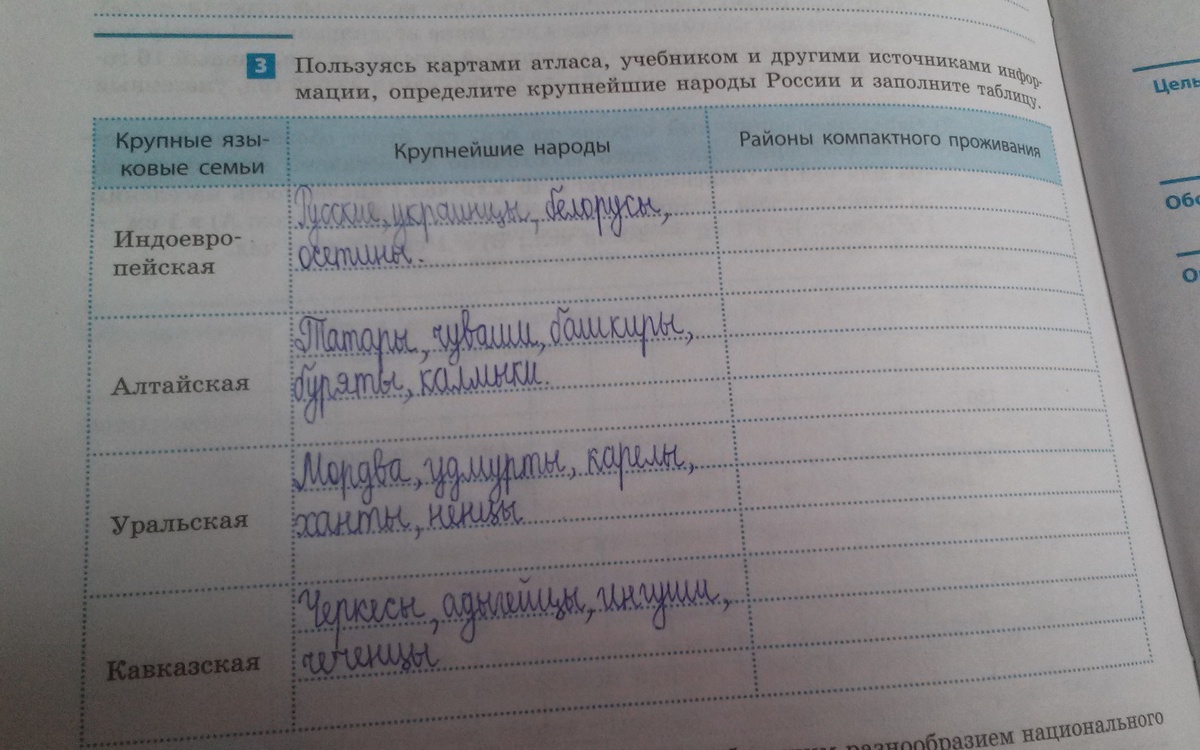 3 Пользуясь картами атласа, учебником и другими источниками инфор-
мации, определите крупнейшие народы России и заполните таблицу.
Крупные язы-
ковые семьи
Крупнейшие народы
Районы компактного проживания
Индоевро-
пейская
Русские, украинцы, белорусы,
осетины.
Алтайская
Татары, чуваши, башкиры,
буряты, калмыки.
Уральская
Мордва, удмурты, карелы,
ханты, ненцы
Кавказская
Черкесы, адыгейцы, ингуши,
чеченцы
разнообразием национального
Цель
Обо